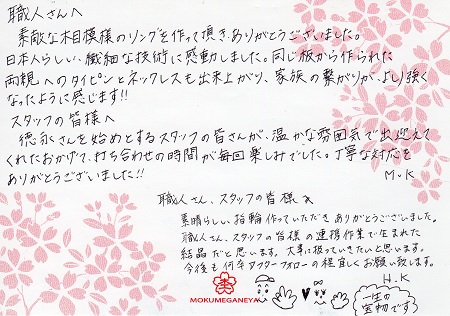 職人さんへ
素敵な木目模様のリングを作って頂き、ありがとうございました。
日本人らしい、繊細な技術に感動しました。同じ板から作られた
両親へのタイピンとネックレスも出来上がり、家族の繋がりが、より強く
なったように感じます!!
スタッフの皆様へ
徳永さんを始めとするスタッフの皆さんが、温かな雰囲気で出迎えて
くれたおかげで、打ち合わせの時間が毎回楽しみでした。丁寧な対応を
ありがとうございました!!
M.K
職人さん、スタッフの皆様へ
素晴らしい指輪作っていただきありがとうございました。
職人さん、スタッフの皆様の連携作業で生まれた
結晶だと思います。大事に扱っていきたいと思います。
今後も何卒アフターフォローの程宜しくお願い致します。
H.K
一生の
宝物です
MOKUMEGANEYA